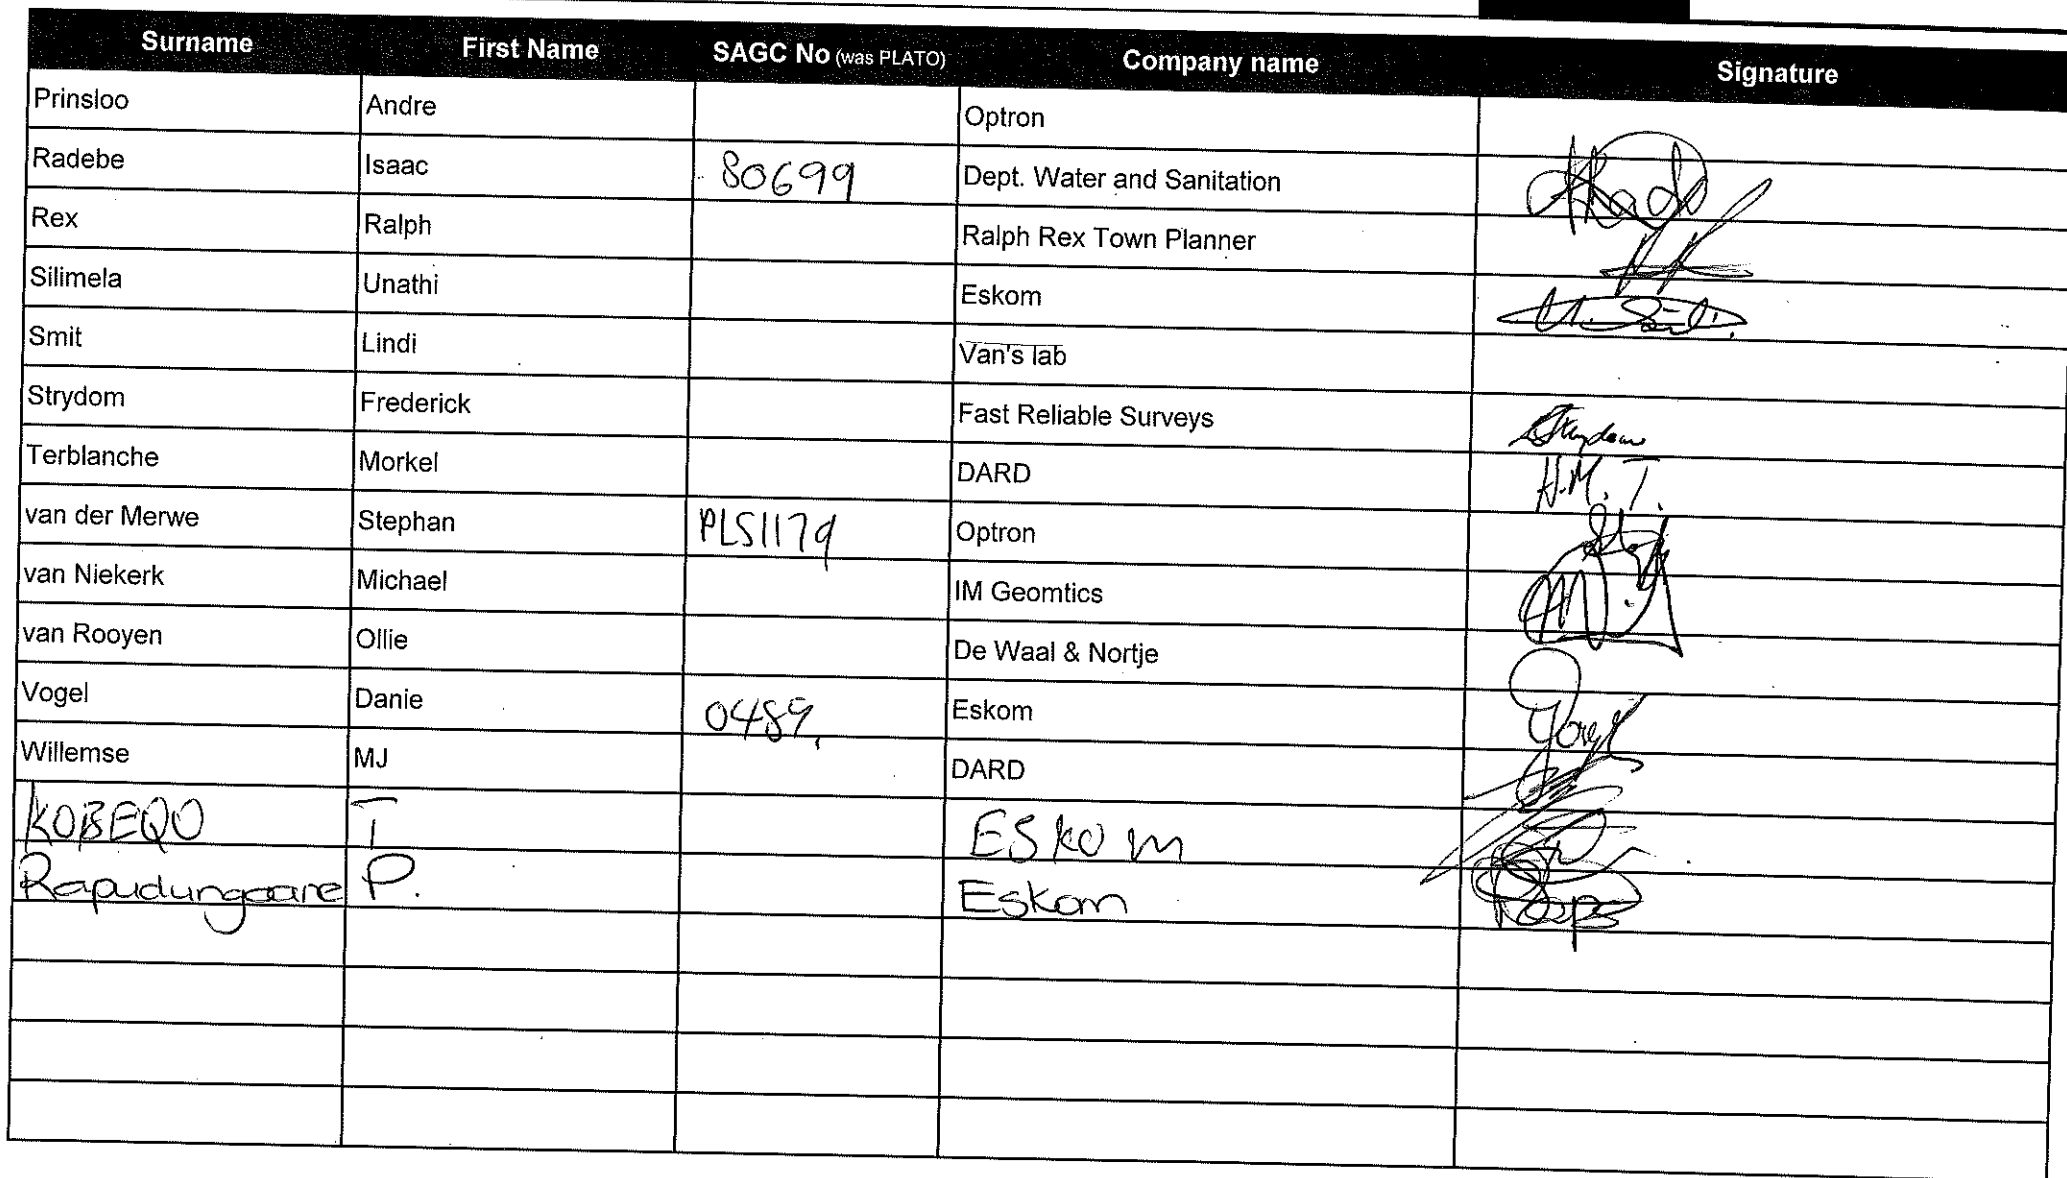 Surname First Name SAGC No (was PLATO) Company name Signature
Prinsloo Andre Optron
Radebe Isaac 80699 Dept. Water and Sanitation
Rex Ralph Ralph Rex Town Planner
Silimela Unathi Eskom
Smit Lindi Van's lab
Strydom Frederick Fast Reliable Surveys Strydom
Terblanche Morkel DARD H.M.T.
van der Merwe Stephan PLS1179 Optron
van Niekerk Michael IM Geomtics
van Rooyen Ollie De Waal & Nortje
Vogel Danie 0489. Eskom
Willemse MJ DARD
KOBEQO T ESkom
Rapudungoare P. Eskom